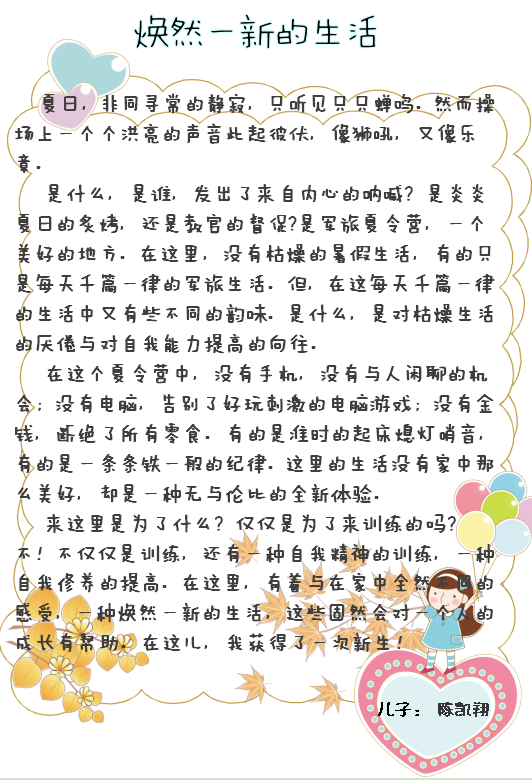 焕然一新的生活
夏日，非同寻常的静寂，只听见只只蝉鸣。然而操
场上一个个洪亮的声音此起彼伏，像狮吼，又像乐
章。
是什么，是谁，发出了来自内心的呐喊？是炎炎
夏日的炙烤，还是教官的督促?是军旅夏令营，一个
美好的地方。在这里，没有枯燥的暑假生活，有的只
是每天千篇一律的军旅生活。但，在这每天千篇一律
的生活中又有些不同的韵味。是什么，是对枯燥生活
的厌倦与对自我能力提高的向往。
在这个夏令营中，没有手机，没有与人闲聊的机
会；没有电脑，告别了好玩刺激的电脑游戏；没有金
钱，断绝了所有零食。有的是准时的起床熄灯哨音，
有的是一条条铁一般的纪律。这里的生活没有家中那
么美好，却是一种无与伦比的全新体验。
来这里是为了什么？仅仅是为了来训练的吗？
不！不仅仅是训练，还有一种自我精神的训练，一种
自我修养的提高。在这里，有着与在家中全然不同的
感受，一种焕然一新的生活，这些固然会对一个人的
成长有帮助。在这儿，我获得了一次新生！
儿子：陈凯翔